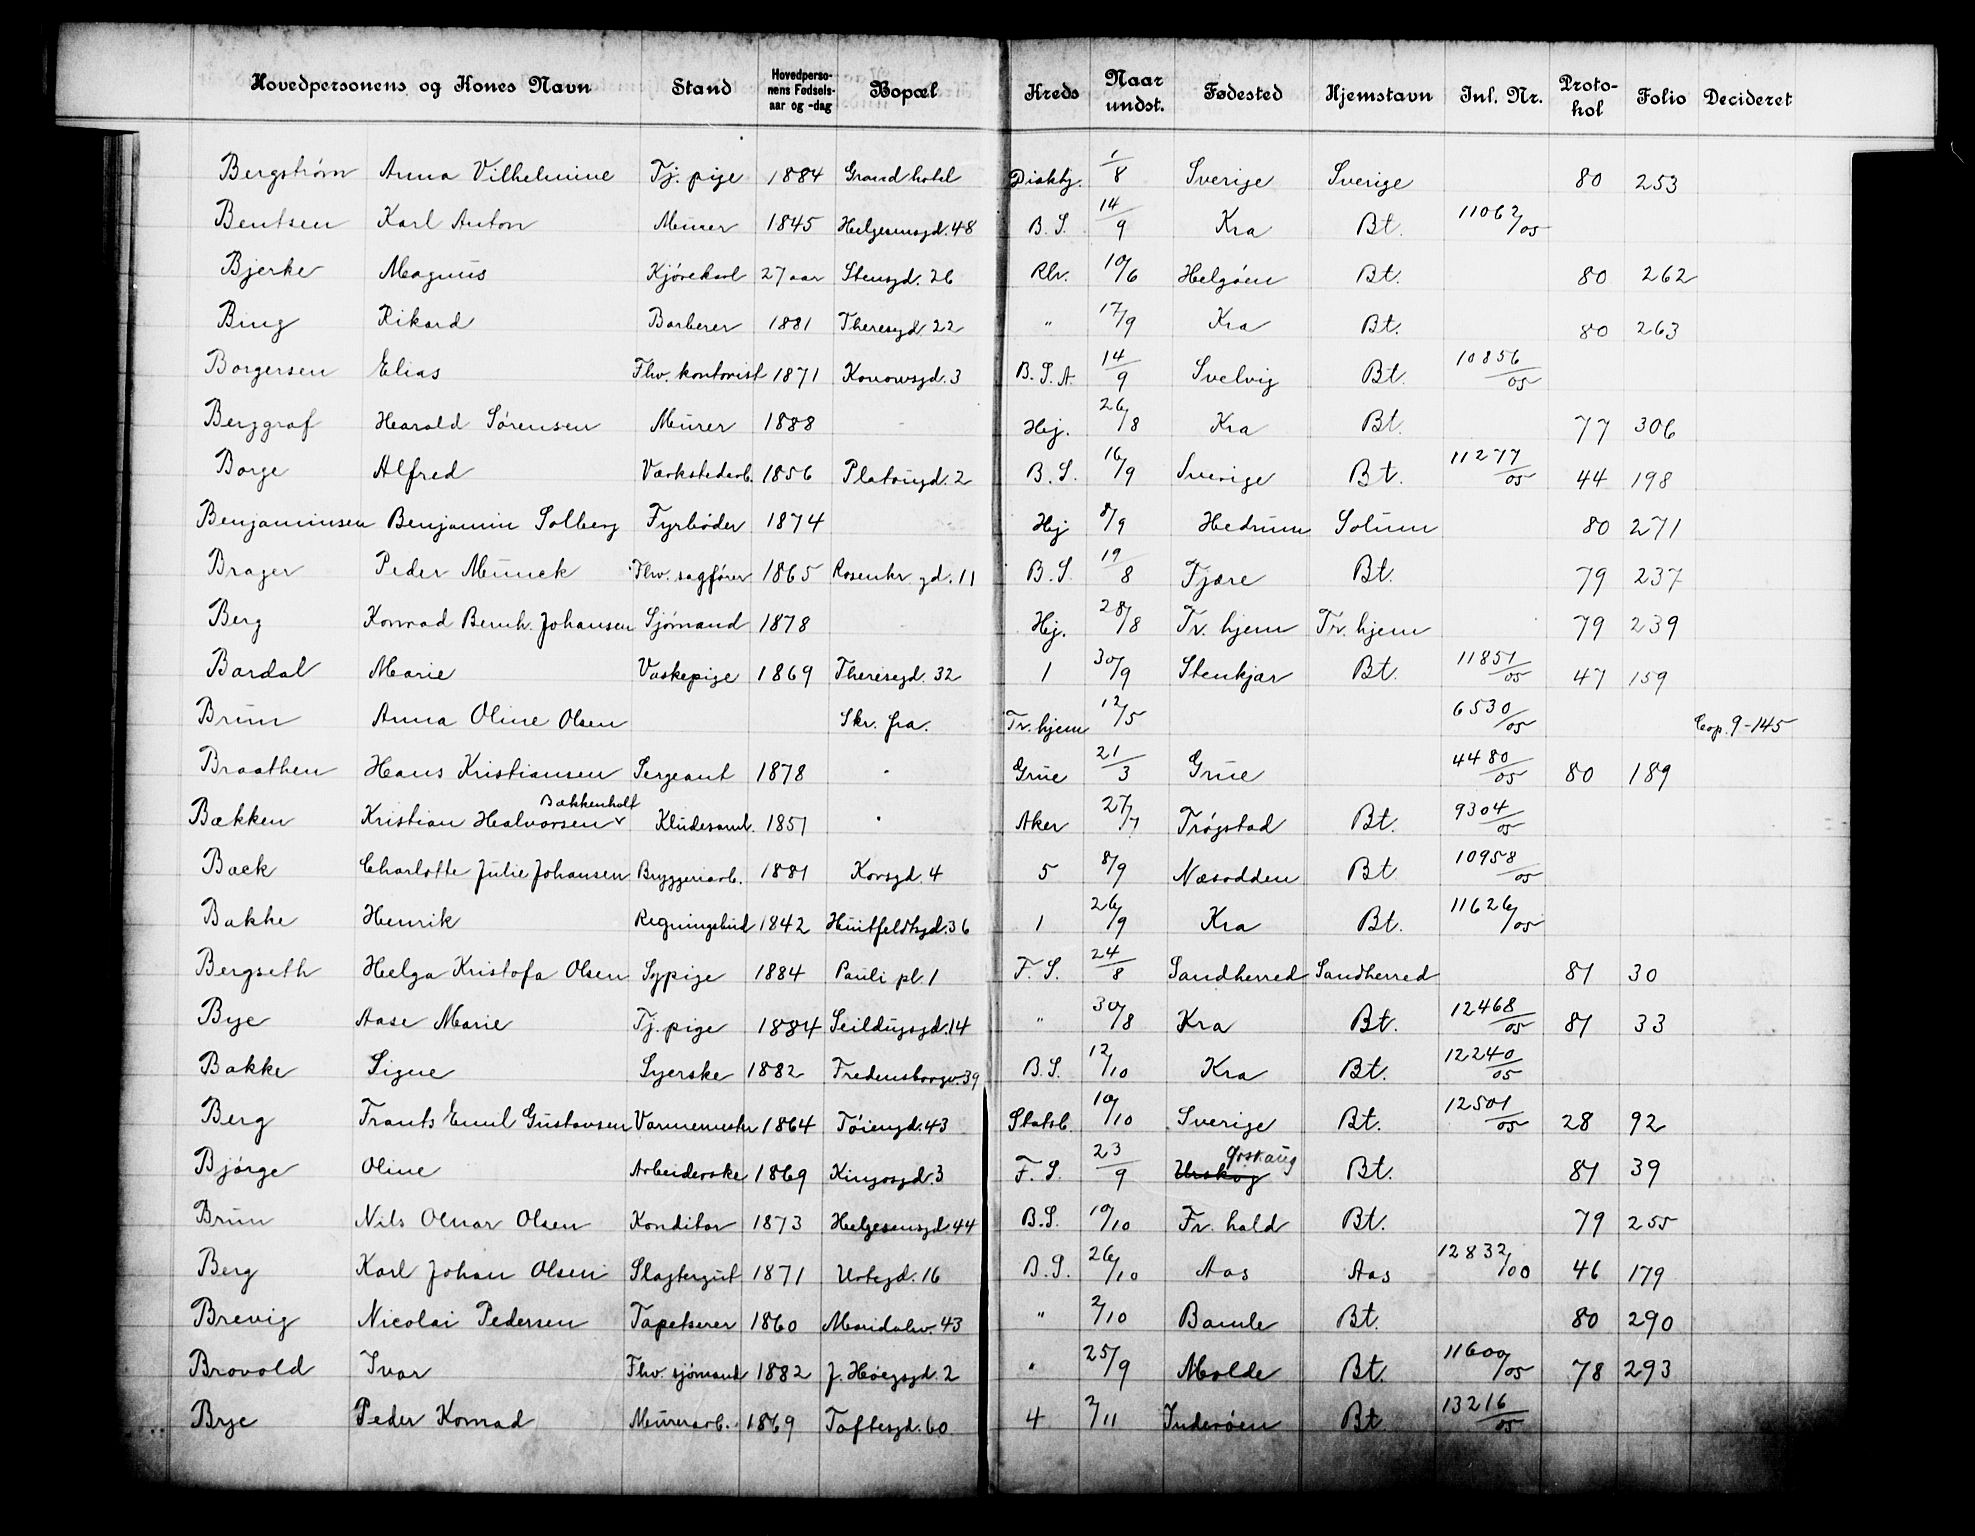 Hovedpersonens og Kones Navn Stand Hovedpersonens Fødselsaar og -dag Bopæl Kreds Naar undst. Fødested Hjemstavn Inl. Nr. Protokol Folio Decideret
Bergstrøm Anna Vilhelmine Tj. pige 1884 Grand hotel Diakhj. 1/8 Sverige Sverige 80 253
Bentsen Karl Anton Murer 1845 Helgesensgd. 48 B. S. 14/9 Kra Bt. 11062/05
Bjerke Magnus Kjørekarl 27 aar Stensgd. 26 Rhv. 10/6 Helgøen Bt. 80 262
Bing Rikard Barberer 1881 Theresgd. 22 " 17/9 Kra Bt. 80 263
Borgersen Elias Fhv. kontorist 1871 Konowsgd. 3 B. S. A. 14/9 Svelvig Bt. 10856/05
Berggraf Harald Sørensen Murer 1888 Hej. 26/8 Kra Bt. 77 306
Borge Alfred Værkstedarb. 1856 Platougd. 2 B. S. 16/9 Sverige Bt. 11277/05 44 198
Benjaminsen Benjamin Solberg Fyrbøder 1874 Hej 8/9 Hedrum Solum 80 271
Brager Peder Munck Fhv. sagfører 1865 Rosenkr. gd. 11 B. S. 19/8 Fjære Bt. 79 237
Berg Konrad Bernh. Johansen Sjømand 1878 Hej. 28/8 Tr. hjem Tr. hjem 79 239
Bardal Marie Vaskepige 1869 Theresegd. 32 1 30/9 Stenkjær Bt. 11851/05 47 159
Brun Anna Oline Olsen Skr. fra. Tr. hjem 12/5 6530/05 Cop. 9-145
Braathen Hans Kristiansen Sergeant 1878 Grue 21/3 Grue 4480/05 80 189
Bækken Kristian Halvorsen Bækkenholt Kludesaml. 1851 Aker 27/7 Trøgstad Bt. 9304/05
Bæck Charlotte Julie Johansen Bryggeriarb. 1881 Korsgd. 4 5 8/9 Næsodden Bt 10958/05
Bakke Henrik Regningsbud 1842 Huitfeldtsgd. 36 1 26/9 Kra Bt. 11626/05
Bergseth Helga Kristofa Olsen Sypige 1884 Pauli pl. 1 F. S. 24/8 Sandherred Sandherred 81 30
Bye Aase Marie Tj. pige 1884 Seildugsgd. 14 " 30/8 Kra Bt. 12468/05 81 33
Bakke Signe Syerske 1882 Fredensborgv. 39 B. S. 12/10 Kra Bt. 12240/05
Berg Frants Emil Gustavsen Varmemester 1864 Tøiengd. 43 Statsb. 10/10 Sverige Bt. 12501/05 28 92
Bjørge Oline Arbeiderske 1869 Kingosgd. 3 F. S. 23/9 Urskog Ørskaug Bt. 81 39
Brun Nils Olmar Olsen Konditor 1873 Helgesensgd. 44 B. S. 19/10 Fr. hald Bt. 79 255
Berg Karl Johan Olsen Slagtergut 1871 Urtegd. 16 B. S. 26/10 Aas Aas 12832/00 46 179
Brevig Nicolai Pedersen Tapetserer 1860 Maridalsv. 43 " 2/10 Bamle Bt. 80 290
Brovold Ivar Fhv. sjømand 1882 J. Høegsgd. 2 " 25/9 Molde Bt. 11600/05 78 293
Brye Peder Konrad Murerarb. 1869 Toftesgd. 60 4 2/11 Inderøen Bt 13216/05